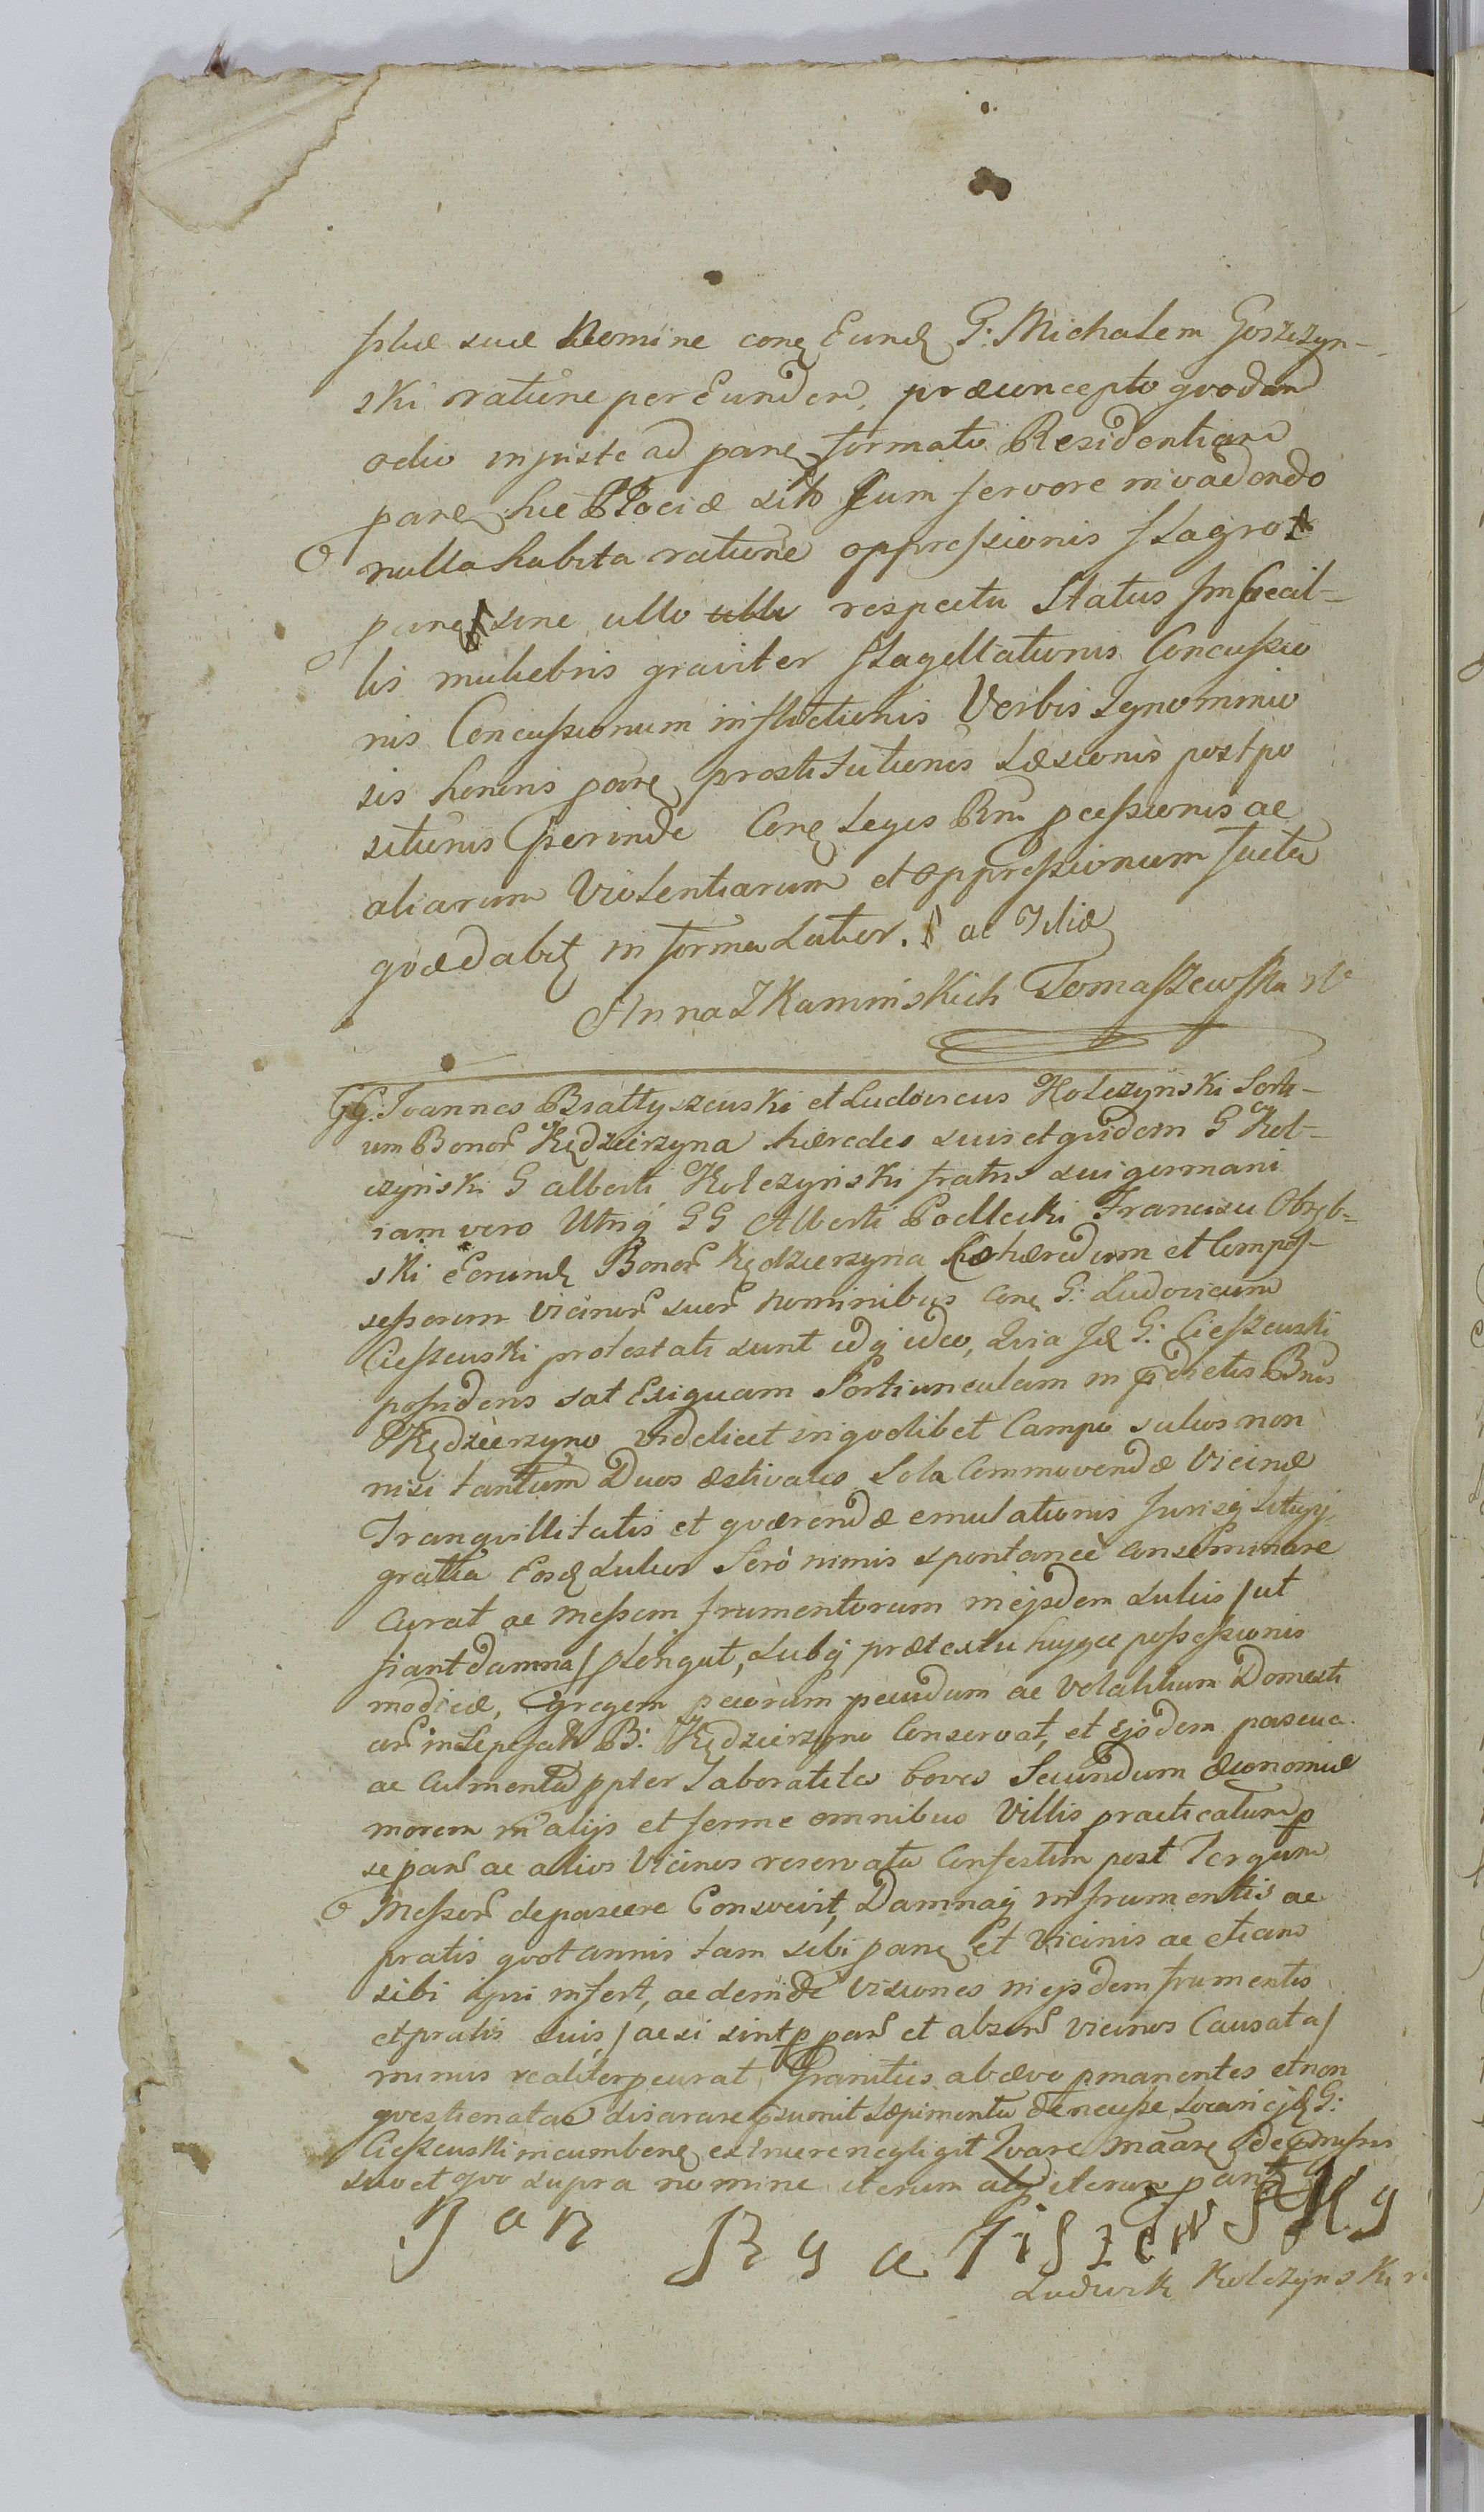 filiæ suæ Nomine conq Eund G: Michalem Goszczyn-
ski ratione per Eundem, præconcepto quodam
odio injuste ad panq formato Residentiam
panq hic Plociæ sito cum fervore invadendo
nulla habita ratione oppressionis flagrot
panq sine ullo ullo respectu Status Imbecil-
lis muliebris graviter flagellationis Concussio
nis Concussionum inflictionis Verbis Ignominio
sis honoris panq prostitutionis Læsionis postpo
sitionis perinde Conq Leges Rni pcessionis ac
aliarum Violentiarum et oppressionum facta
qvæ dabit in forma Latior. ac Filiæ
Anna Z Kaminskich Tomaszewska
GG. Joannes Bratlyszewski et Ludovicus Kolczyński Sorti-
um Bonor Kędzierzyna hæredes suis et qvidem G Kol-
czyński G alberti Kolczyński fratris sui germani
iam vero Utriq GG Alberti Podlecki Francisci Obręb-
ski Eorund Bonor Kędzierzyna Cohæredum et Compos-
sessorum vicinor suor nominibus conq G: Ludovicum
Cieszewski protestati sunt idq ideo, Qvia Id G: Cieszewski
possidens sat Exiguam Portiunculam in pdictis Bnis
Kędzierzyno videlicet in qvolibet Campo sulcos non
nisi tantum Duos æstivales Sola Commovendæ Vicinæ
Tranqvillitatis et qværendæ emulationis Jurisq
gratia Eosd sulcos Sero nimis spontaneè conseminare
Curat ac messem frumentorum in ejsdem sulcis /ut
fiant damna/ plongat, subq prætextu hujqce possessionis
modicæ, gregem pecorum pecudum ac volatilium Domesti
cor in B: Kędzierzyno Conservat, et Ejsdem pascua
ac Culmenta ppter Laboratiles boves Secundum Œconomiæ
morem in alijs et ferme omnibus Villis practicatum p
se pan ac alios Vicinos reservata Confestim post Tergum
Messor depascere Consvevit, Damnaq in frumentis ac
pratis qvotannis tam sibi panq et Vicinis ac etiam
sibi ipsi infert, ac deinde visiones in ejsdem frumentis
et pratis suis, /ac si sint p pan et absen vicinos Causata/
minus realiter pcurat, Granities ab ævo pmanentes et non
qvestionatas disarare psumit Sæpimenta denensse
Cieszewski incumbenq extruere negligit Qvare
suo et qvo supra nomine iterum atq iterum
Jan Bratiszewsky
Ludwik Kolczynski